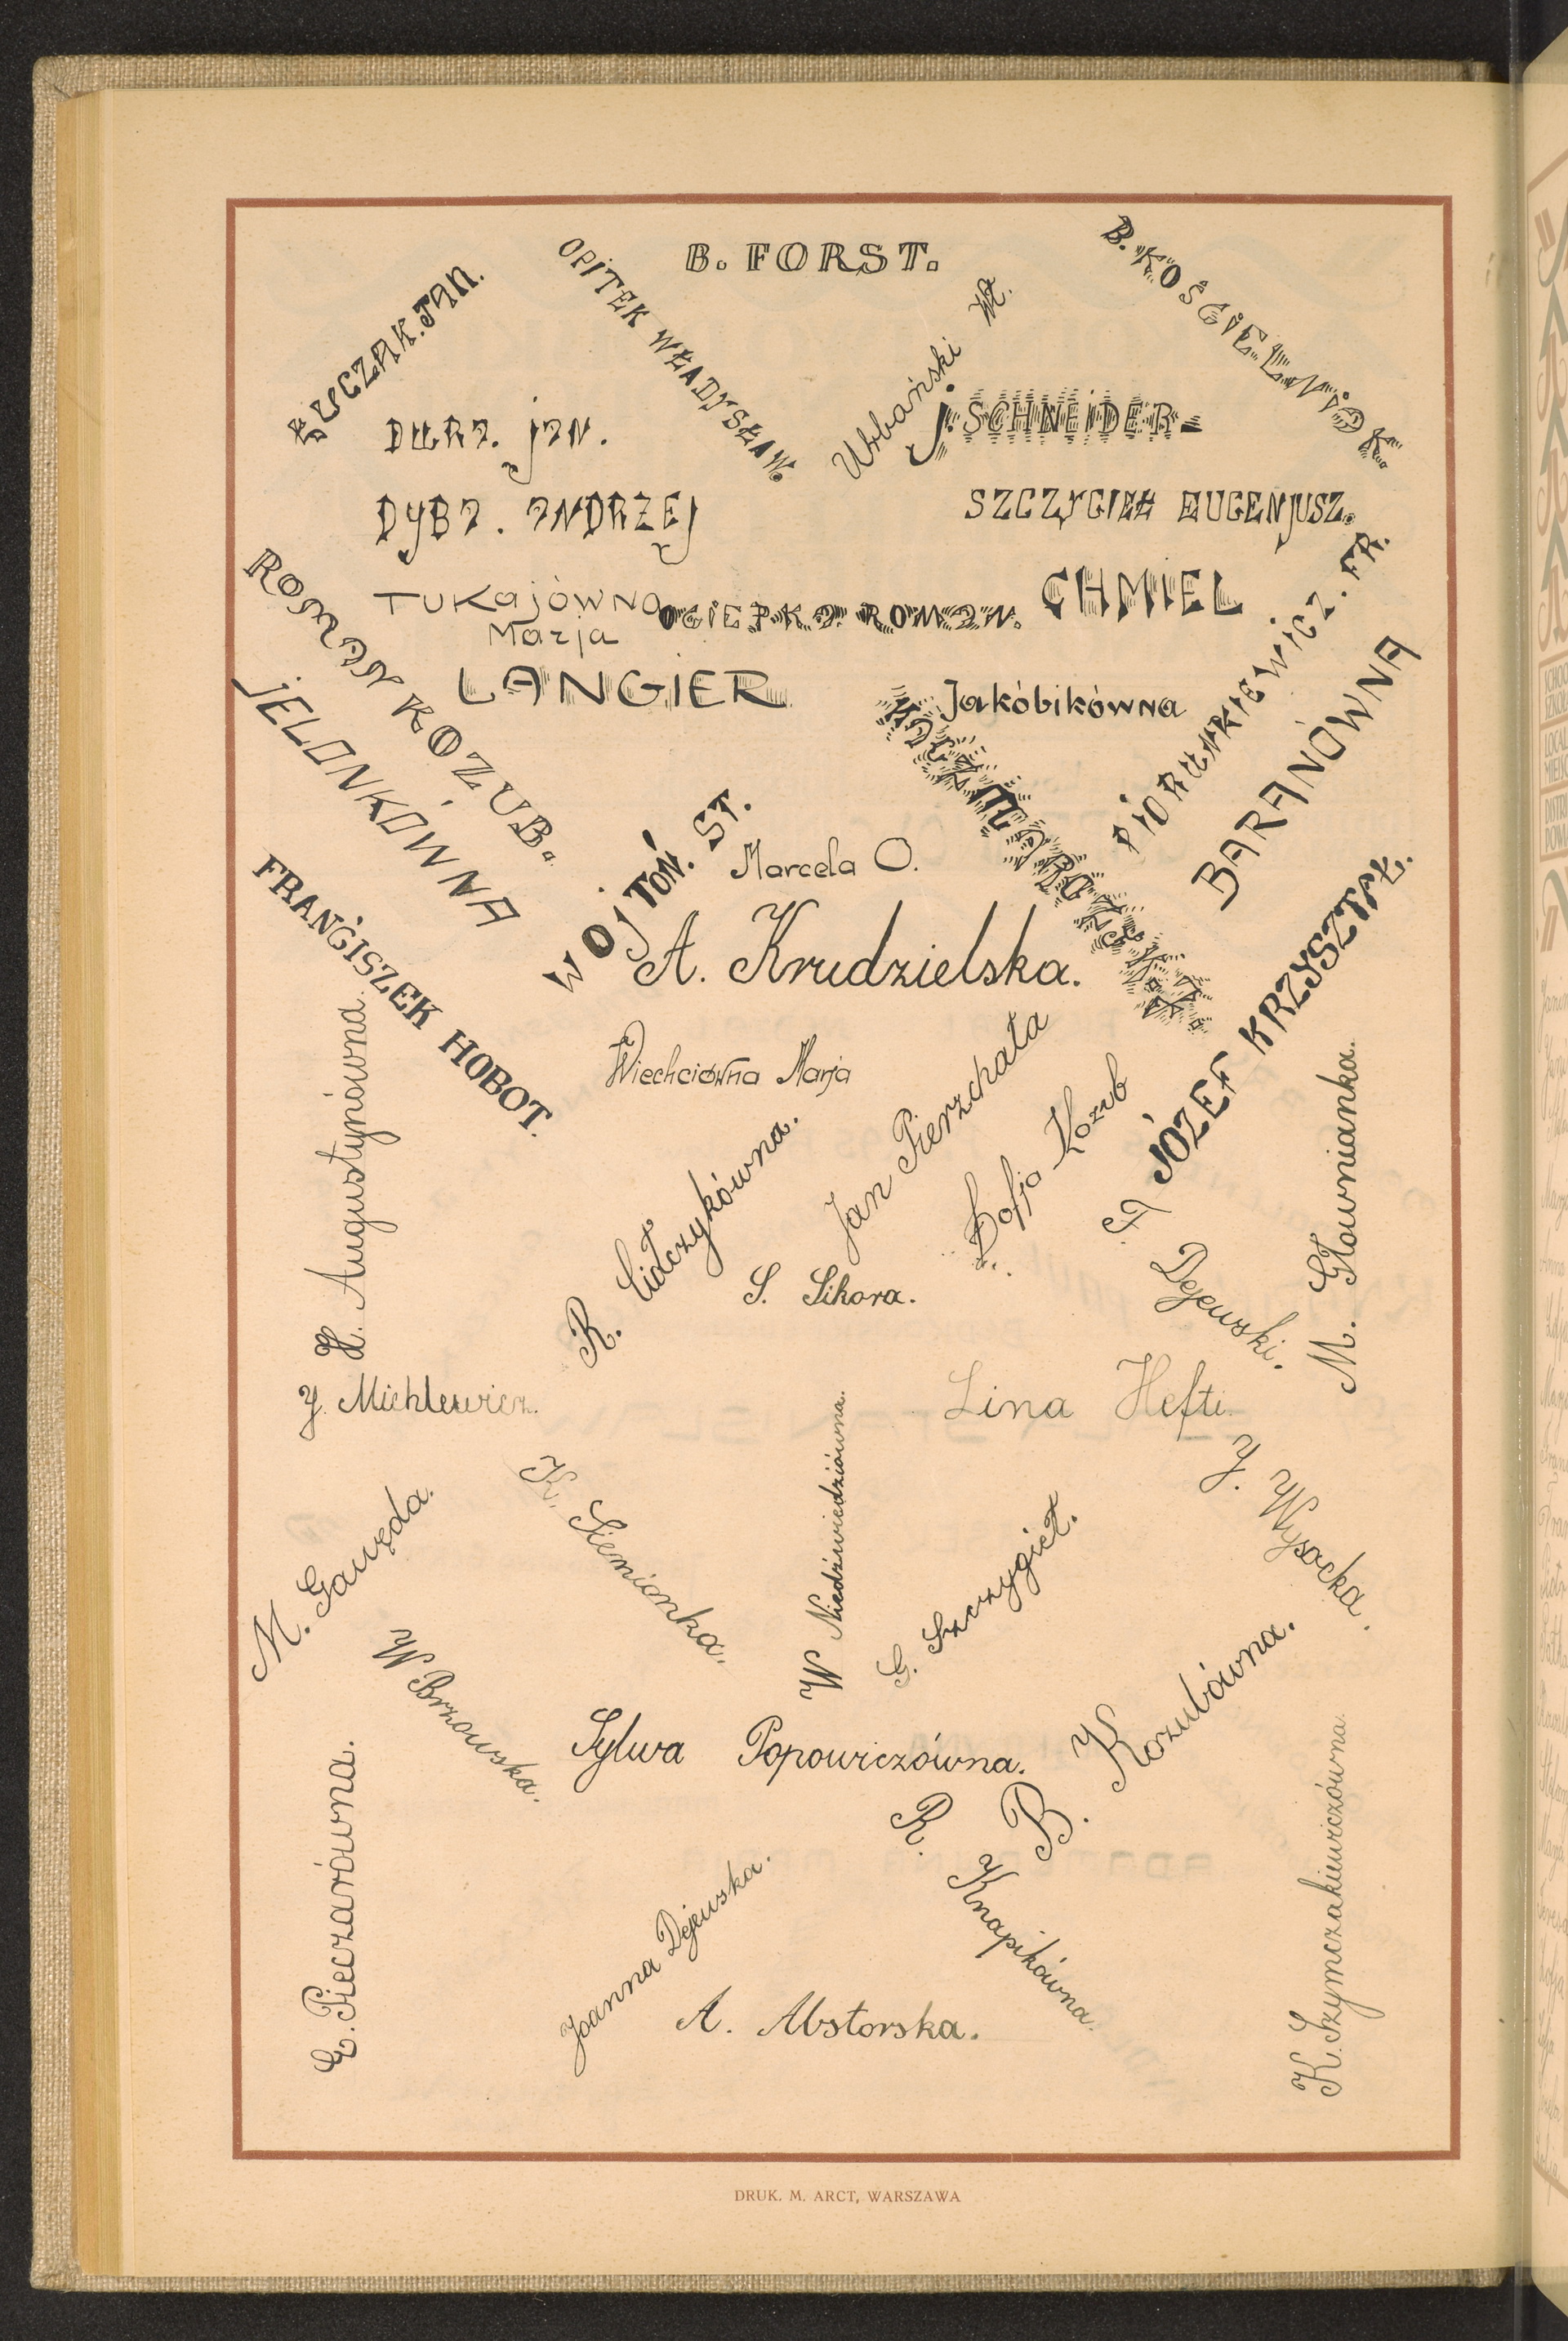 B. FORST.
B. KOŚCIELNIOK.
OPITEK WŁADYSŁAW.
JAN.
Urbański Wł.
J. SCHNEIDER
DURA. JAN.
DYBA. ANDRZEJ
SZCZYGIEŁ EUGENJUSZ.
ROMAN KOZUB.
TUKajówNa
Marja
OGIEPKA ROMAN.
CHMIEL
PIÓRUNKIEWICZ. FR.
LANGIER
Jakóbikówna
JELONKÓWNA
BARANÓWNA
WOJTOŃ. ST.
Marcela O.
FRANCISZEK HOBOT.
A. Krudzielska.
JÓZEF KRZYSZTAŁ.
H. Augustyniówna.
Wiechciówna Marja
Jan Pierzchała
Zofja Kozub
M. Głownianka.
R. Cidczykówna.
S. Sikora.
F. Dejewski.
J. Michlewicz.
Lina Hefti.
M. Gawęda.
K. Siemionka.
W Niedźwiedziówna.
G. Szczygieł.
J. Wysocka.
W Brzowska.
Sylwa Popowiczówna.
B. Kozubówna.
E. Pieczarówna.
R. Knapikówna.
K. Szymczakiewiczówna.
Joanna Dejewska.
A. Abstorska.
DRUK. M. ARCT, WARSZAWA